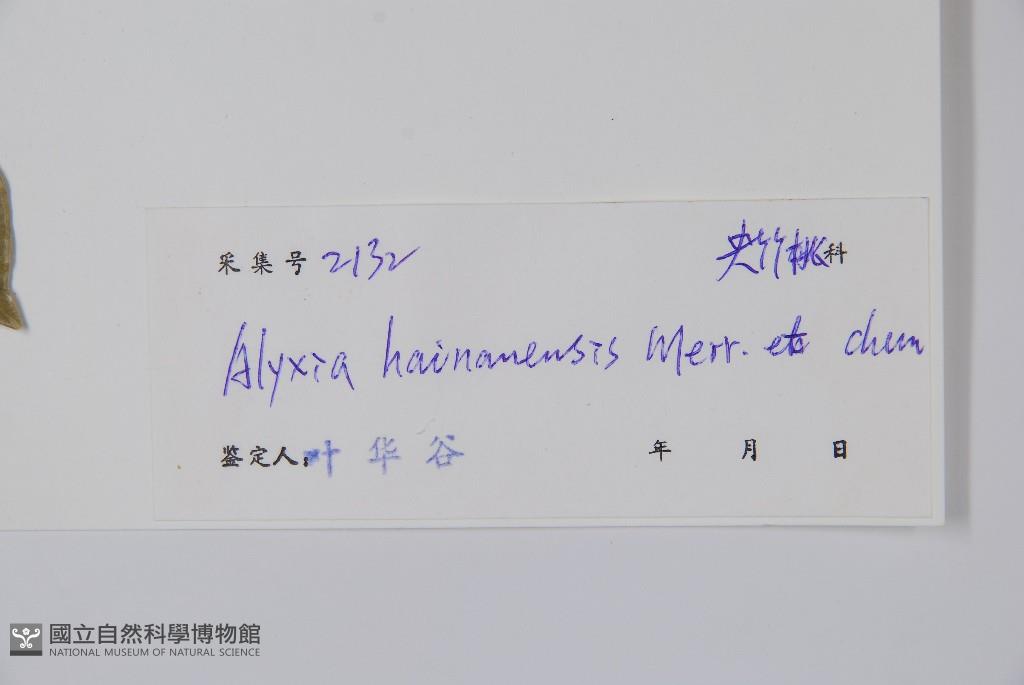 采集号 2132 夹竹桃科
Alyxia hainanensis Merr. et Chun
鉴定人：叶华谷 年 月 日
國立自然科學博物館
NATIONAL MUSEUM OF NATURAL SCIENCE